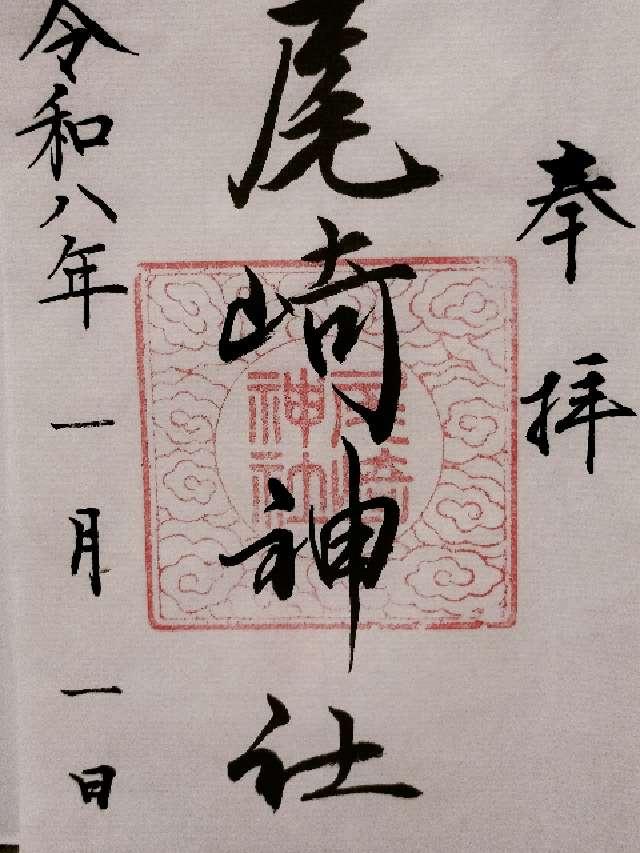 奉拝
尾崎神社
尾崎神社
令和八年一月一日